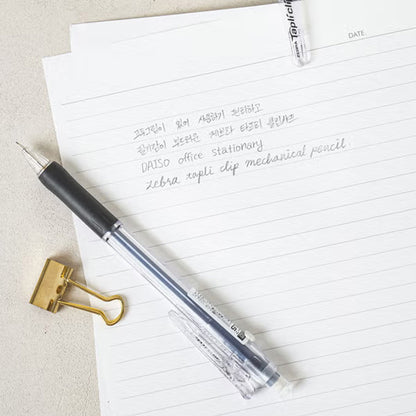 Tapliclip
DATE
고무그립이 있어 사용하기 편리하고
필기감이 부드러운 제브라 타프리 클립샤프
DAISO office stationary
zebra tapli clip mechanical pencil.